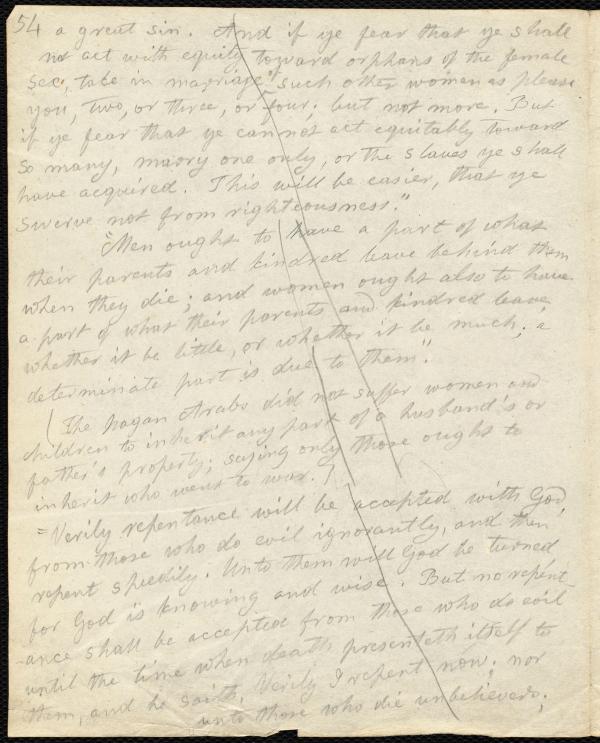 54 a great sin. And if ye fear that ye shall
not act with equity toward orphans of the female
sex, take in marriage such other women as please
you, two, or three, or four; but not more. But
if ye fear that ye cannot act equitably toward
so many, marry one only, or the slaves ye shall
have acquired. This will be easier, that ye
swerve not from righteousness."
"Men ought to have a part of what
their parents and kindred leave behind them
when they die; and women ought also to have
a part of what their parents and kindred leave,
whether it be little, or whether it be much; a
determinate part is due to them".
(The pagan Arabs did not suffer women and
children to inherit any part of a husband's or
father's property; saying only those ought to
inherit who went to war.)
"Verily repentance will be accepted with God
from those who do evil ignorantly, and then
repent speedily. Unto them will God be turned
for God is knowing and wise. But no repent-
-ance shall be accepted from those who do evil
until the time when death presenteth itself to
them, and he saith, Verily I repent now; nor
unto those who die unbelievers;